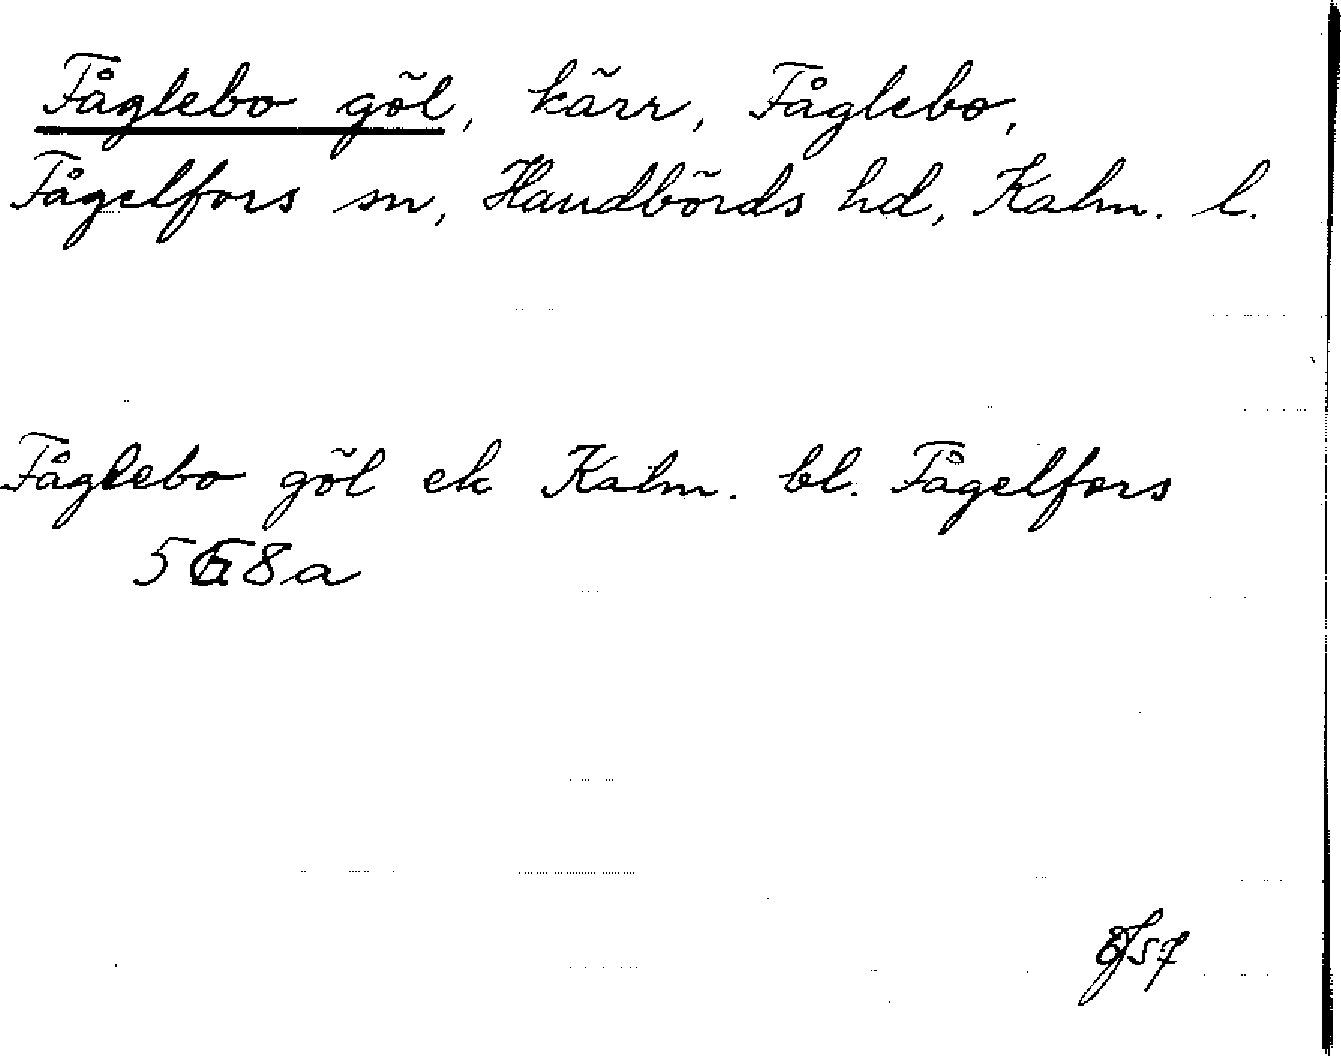 Fåglebo göl, kärr, Fåglebo,
Fågelfors sn, Handbörds hd, Kalm. l.
Fåglebo göl ek Kalm. bl. Fågelfors
8a